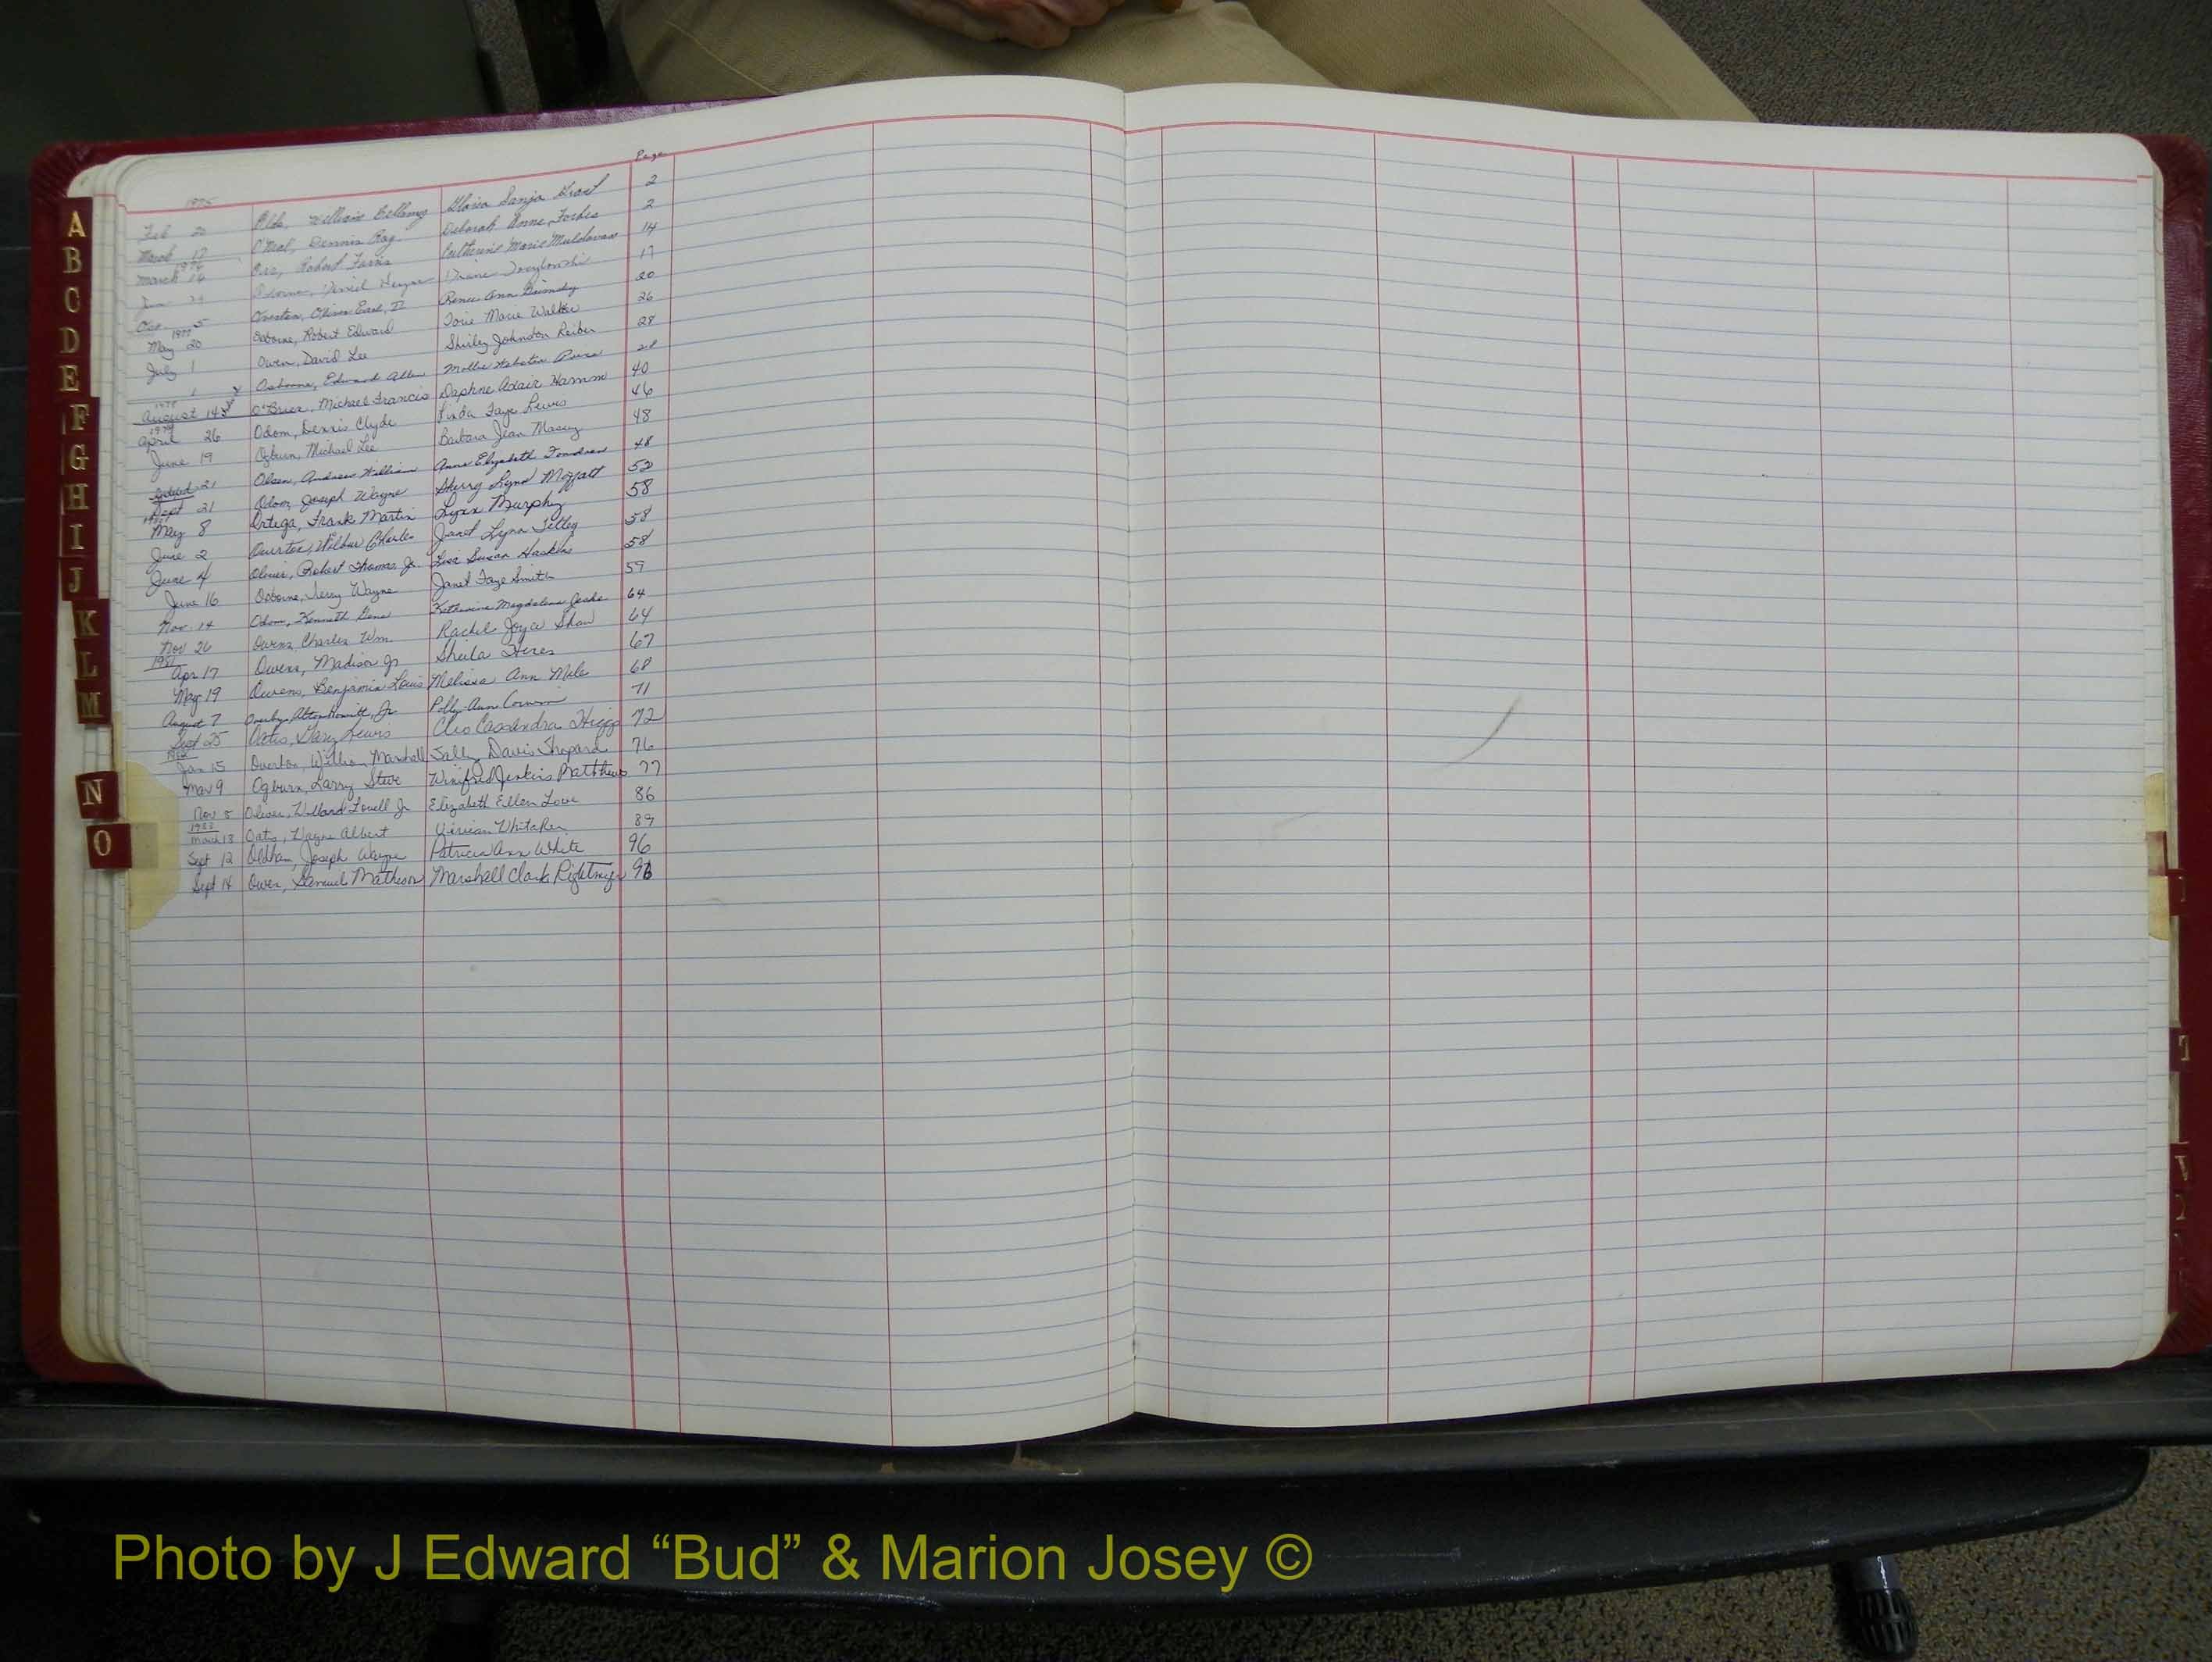 Page
1975
Feb 20 Olds, William Bellamy Gloria Sonja 2
March 17 O'Neal, Dennis Ray Deborah Anne Forbes 2
1976
March 16 Orr, Robert Farris Catherine Marie 14
Jun 29 Osborne, David Wayne Diane 17
Oct 5 Overton, Oliver Earl, II Renee Ann 20
1977
May 20 Osborne, Robert Edward Torie Marie Walker 26
July 1 Owen, David Lee Shirley Johnston Reiber 28
1 Osborne, Edward Allen Mollie Webster 28
August 14 O'Brien, Michael Francis Daphne Adair Hamm 40
1979
April 26 Odom, Dennis Clyde Linda Faye Lewis 46
June 19 Ogburn, Michael Lee Barbara Jean Massey 48
21 Olsen, Andrew William Anna Elizabeth 48
Sept 21 Odom, Joseph Wayne Sherry Lynn Moffatt 52
May 8 Ortega, Frank Martin Lynn Murphy 58
June 2 Overton, Wilbur Charles Janet Lynn Tilley 58
June 4 Oliver, Robert Thomas, Jr. Lisa Susan Haskins 58
June 16 Osborne, Jerry Wayne Janet Faye Smith 59
Nov 14 Odom, Kenneth Gene Katherine Magdalena 64
Nov 26 Owens, Charles Wm. Rachel Joyce Shaw 64
1981
Apr 17 Owens, Madison Jr Sheila 67
May 19 Owens, Benjamin Louis Melissa Ann Mile 68
August 7 Overby, Alton Jr. Polly Ann 71
Sept 25 Oates, Gary Lewis Cleo Cassandra Higgs 72
1982
Jan 15 Overton, William Marshall Sally Davis Shepard 76
Mar 9 Ogburn, Larry Steve Winifred Jenkins Matthews 77
Nov 5 Oliver, Willard Lowell Jr Elizabeth Ellen Love 86
1983
March 13 Oats, Wayne Albert Vivian Whitaker 89
Sept 12 Oldham, Joseph Wayne Patricia Ann White 96
Sept 14 Owen, Samuel Matheson Marshall Clark Rightmyer 96
A
B
C
D
E
F
G
H
I
J
K
L
M
N
O
Photo by J Edward “Bud” & Marion Josey ©